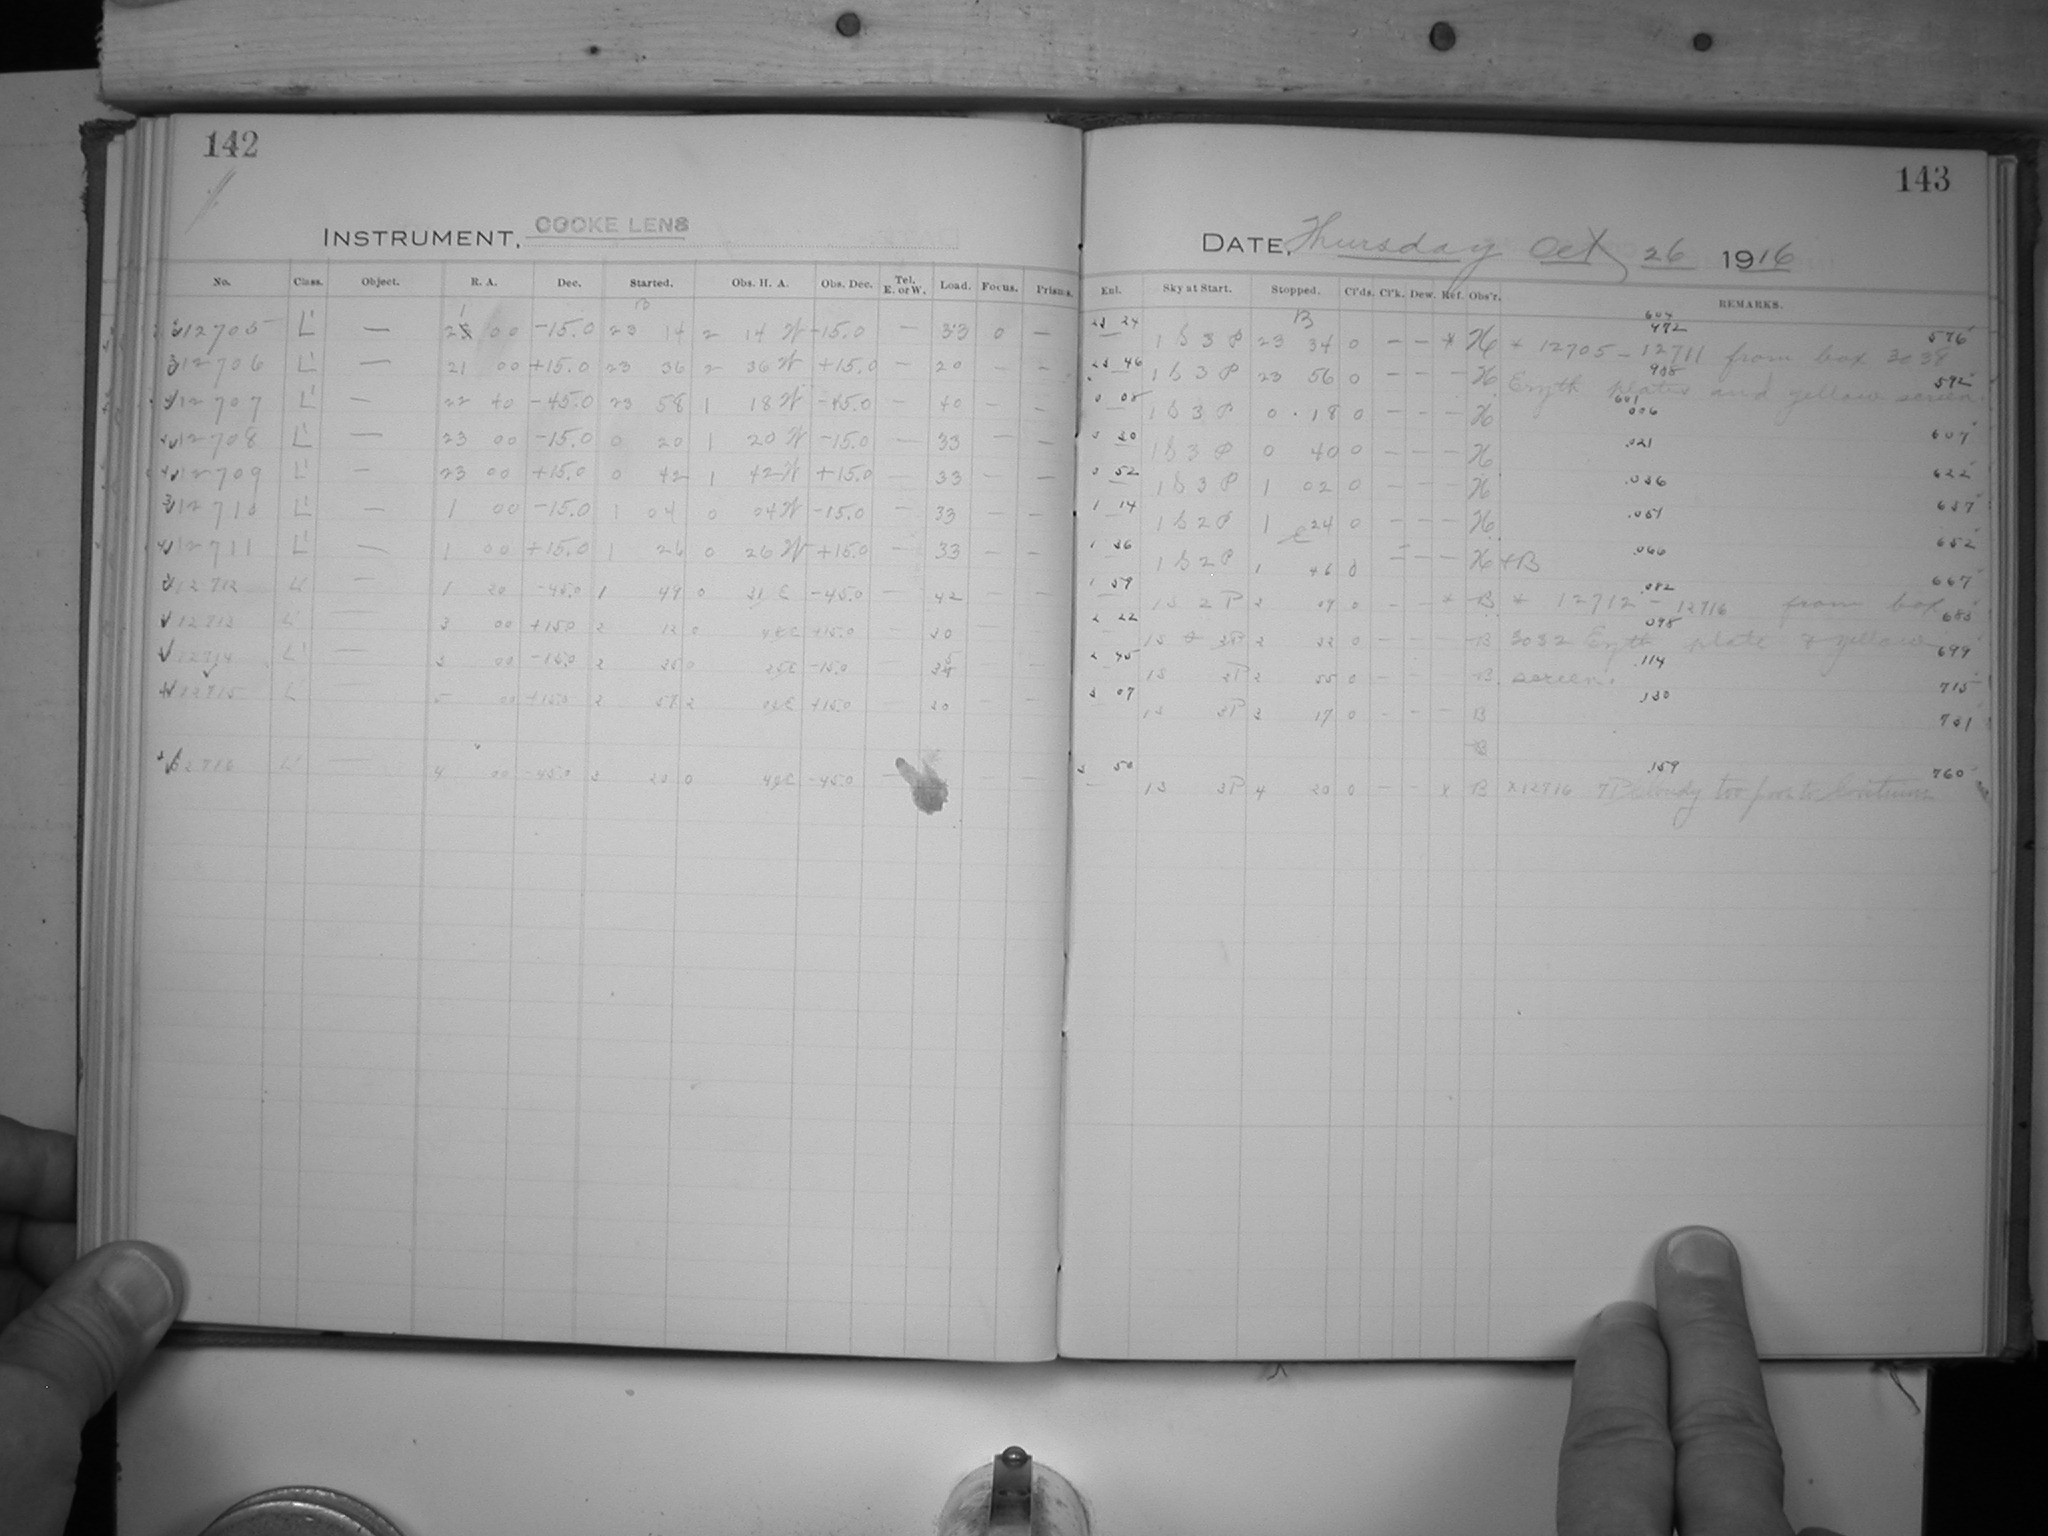 142
INSTRUMENT, COOKE LENS
No. Class. Object. R. A. Dec. Started. Obs. H. A. Obs. Dec. Tel. E. or W. Load. Focus. Prisms.
12705 L' — 21 00 -15.0 23 14 2 14 W -15.0 — 33 0 —
12706 L' — 21 00 +15.0 23 36 2 36 W +15.0 — 20 — —
12707 L' — 22 40 -45.0 23 58 1 18 W -45.0 — 40 — —
12708 L' — 23 00 -15.0 0 20 1 20 W -15.0 — 33 — —
12709 L' — 23 00 +15.0 0 42 1 42 W +15.0 — 33 — —
12710 L' — 1 00 -15.0 1 04 0 04 W -15.0 — 33 — —
12711 L' — 1 00 +15.0 1 26 0 26 W +15.0 — 33 — —
12712 L' — 1 20 -45.0 1 49 0 31 E -45.0 — 42 — —
12713 L' — 3 00 +15.0 2 12 0 48 E +15.0 — 30 — —
12714 L' — 3 00 -15.0 2 35 0 25 E -15.0 —
12715 L' 5 00 +15.0 2 57 2 03 E +15.0 — 30 — —
12716 L' — 4 00 -45.0 3 20 0 40 E -45.0 — — —
143
DATE, Thursday Oct 26 1916
Ent. Sky at Start. Stopped. Cl'ds. Cl'k. Dew. Ref. Obs'r. REMARKS.
604
23 24 B 472 576
1 S 3 P 23 34 0 — — * H * 12705 — 12711 from box 3038
23 46 988 592
1 S 3 P 23 56 0 — — — H Eryth plates and yellow screen.
0 08 601 .006
1 S 3 P 0 18 0 — — — H
0 30 .021 607
1 S 3 P 0 40 0 — — — H
0 52 .036 622
1 S 3 P 1 02 0 — — — H
1 14 .051 637
1 S 2 P 1 24 0 — — — H
1 36 .066 652
1 S 2 P 1 46 0 — — — H + B
1 59 .082 667
1 S 2 P 2 09 0 — — * B * 12712 — 12716 from box
2 22 .098 683
1 S 3 P 2 32 0 — — — B 3032 Eryth plate & yellow
2 45 .114 699
1 S 3 P 2 55 0 — — B screen.
3 07 .130 715
1 S 3 P 3 17 0 — — — B
731
B
3 50 .159 760
1 S 3 P 4 20 0 — — * B * 12716 7P Cloudy too poor to Continue